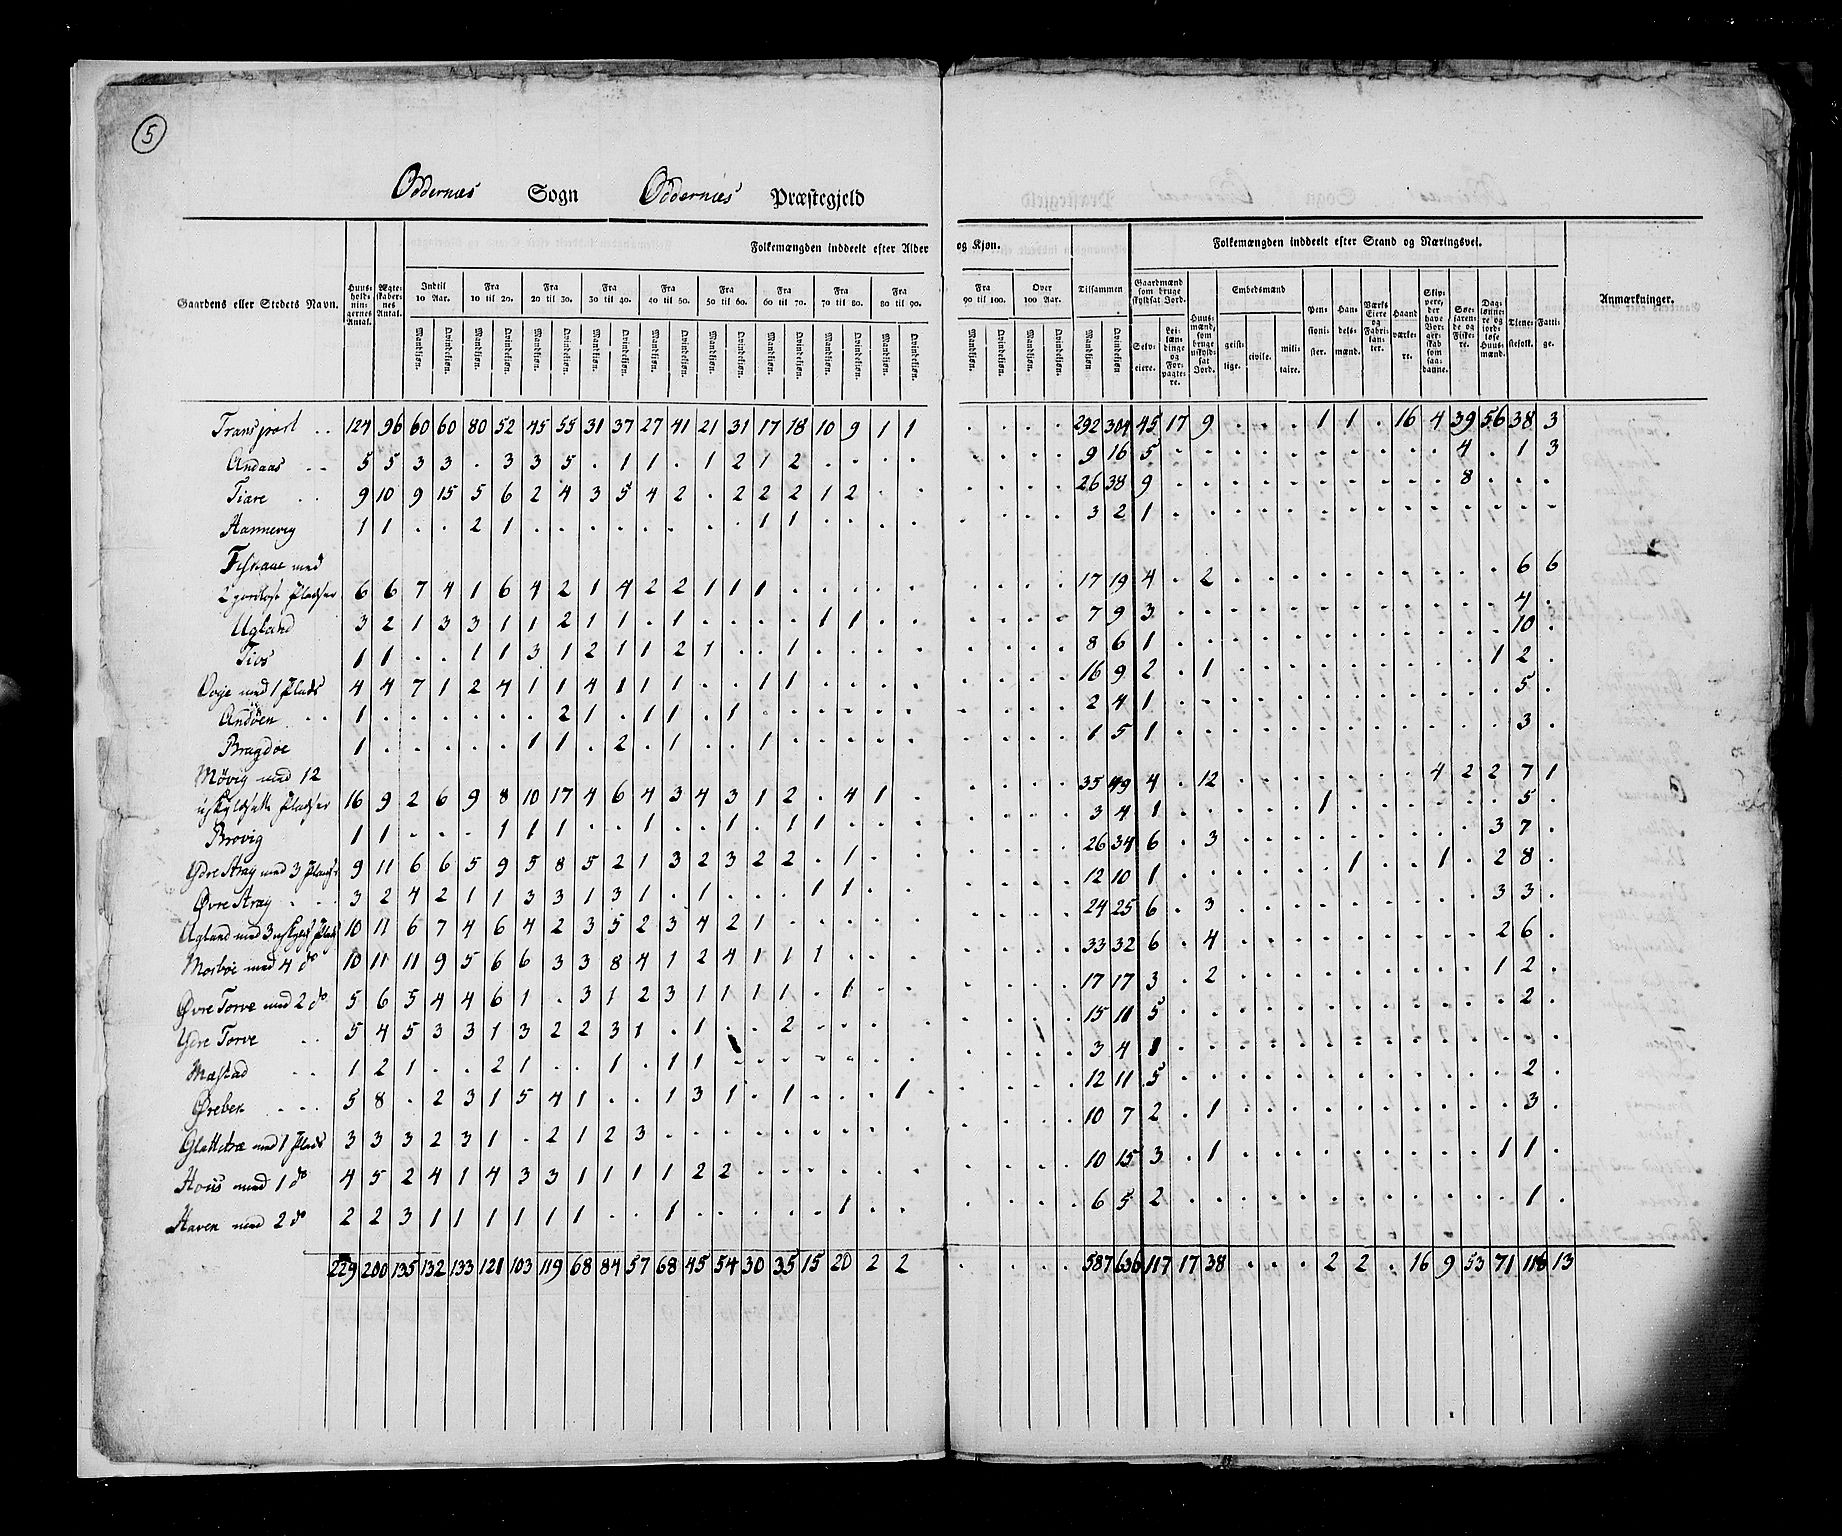 5
Oddernæs Sogn Oddernæs Præstegjeld
Gaardens eller Stedets Navn. Huus-hold-nin-gernes Antal. Ægte-skaber-nes Antal. Folkemængden inddeelt efter Alder og Kjøn. Folkemængden inddeelt efter Stand og Næringsvei. Anmærkninger.
Indtil 10 Aar. Fra 10 til 20. Fra 20 til 30. Fra 30 til 40. Fra 40 til 50. Fra 50 til 60. Fra 60 til 70. Fra 70 til 80. Fra 80 til 90. Fra 90 til 100. Over 100 Aar. Tilsammen
Mandkjøn. Qvindekjøn. Mandkjøn. Qvindekjøn. Mandkjøn. Qvindekjøn. Mandkjøn. Qvindekjøn. Mandkjøn. Qvindekjøn. Mandkjøn. Qvindekjøn. Mandkjøn. Qvindekjøn. Mandkjøn. Qvindekjøn. Mandkjøn. Qvindekjøn. Mandkjøn. Qvindekjøn. Mandkjøn. Qvindekjøn. Mandkjøn. Qvindekjøn.
Gaardmænd som bruge skyldsat Jord. Selv-eiere. Lei-læn-dinge og For-pagte-re. Huus-mænd, som bruge uskyld-sat Jord. Embedsmænd geist-lige. civile. mili-taire. Pen-sioni-ster. Han-dels-mænd. Værks Eiere og Fabri-kan-ter. Haand værke-re. Skip-pere, der have Bor-ger-skab som saa-danne. Søe-faren-de og Fiske-re. Dag-lønne-re og jord-løse Huus-mænd. Tiene-stefolk. Fatti-ge.
Transport . . 124 96 60 60 80 52 45 55 31 37 27 41 21 31 17 18 10 9 1 1 . . . . 292 304 45 17 9 . . . 1 1 . 16 4 39 56 38 3
Andaas . . 5 5 3 3 . 3 3 5 . 1 1 . 1 2 1 2 . . . . . . . . 9 16 5 . . . . . . . . . . 4 . 1 3
Tiare . . 9 10 9 15 5 6 2 4 3 5 4 2 . 2 2 2 1 2 . . . . . . 26 38 9 . . . . . . . . . . 8 . . .
Hannevig 1 1 . . 2 1 . . . . . . . . 1 1 . . . . . . . . 3 2 1 . . . . . . . . . . . . . .
med
2 Pladser 6 6 7 4 1 6 4 2 1 4 2 2 1 1 1 . . . . . . . . . 17 19 4 . 2 . . . . . . . . . . 6 6
Ugland 3 2 1 3 3 1 1 2 1 1 . 1 . . . . 1 1 . . . . . . 7 9 3 . . . . . . . . . . . . 4 .
Tios 1 1 . . 1 1 3 1 2 1 1 2 1 . . 1 . . . . . . . . 8 6 1 . . . . . . . . . . . . 10 .
med 1 Plads 4 4 7 1 2 4 1 1 4 1 1 1 . . 1 1 . . . . . . . . 16 9 2 . 1 . . . . . . . . . 1 2 .
Andöen . . 1 . . . . . . 2 1 . 1 1 . 1 . . . . . . . . . . 2 4 1 . . . . . . . . . . . . 5 .
Bragdøe 1 . . . . . 1 1 . 2 . 1 . . 1 . . . . . . . . . 1 5 1 . . . . . . . . . . . . 3 .
Møvig med 12
uskyldsatte Pladser 16 9 2 6 9 8 10 17 4 6 4 3 4 3 1 2 . 4 1 . . . . . 35 49 4 . 12 . . . . . . . 4 2 2 7 1
Brovig 1 1 . . . 1 1 1 . . 1 . . 1 . 1 1 . . . . . . . 3 4 1 . . . . . 1 . . . . . . 5 .
Ydre Stray med 3 Pladser 9 11 6 6 5 9 5 8 5 2 1 3 2 3 2 2 . 1 . . . . . . 26 34 6 . 3 . . . . . . . . . 3 7 .
Øvre Stray . . . 3 2 4 2 1 1 3 3 1 3 1 . 1 . . . 1 1 . . . . . . 12 10 1 . . . . . . 1 . . 1 . 2 8 .
Ugland med 3 Plads 10 11 6 7 4 6 4 2 3 5 2 3 4 2 1 . . . . . . . . . 24 25 6 . 3 . . . . . . . . . 3 3 .
Mosbøe med 4 do 10 11 11 9 5 6 6 3 3 8 4 1 2 4 1 1 1 . . . . . . . 33 32 6 . 4 . . . . . . . . . 2 6 .
Øvre Torve med 2 do 5 6 5 4 4 6 1 . 3 1 2 3 1 1 1 1 . 1 . . . . . . 17 17 3 . 2 . . . . . . . . . 1 2 .
Ydre Torve . . 5 4 5 3 3 1 3 2 2 3 1 . 1 . . 2 . . . . . . . . 15 11 5 . . . . . . . . . . . . 2 .
Mæstad . . 1 2 1 . . 2 1 . . 1 . 1 1 . . . . . . . . . . . 3 4 1 . . . . . . . . . . . . . .
Øreber . . . 5 8 . 2 3 1 5 4 1 . . 1 3 1 . 1 . . . 1 . . . . 12 11 5 . . . . . . . . . . . . 2 .
Glattetræ med 1 Plads 3 3 3 2 3 1 . 2 1 2 3 . . . . . . . . . . . . . 10 7 2 . 1 . . . . . . . . . . 3 .
Hous med 1 do 4 5 2 4 1 4 3 3 1 1 1 1 2 2 . . . . . . . . . . 10 15 3 . 1 . . . . . . . . . 1 1 .
Haven med 2 do 2 2 3 1 1 1 1 1 1 . . 1 . . . . . 1 . . . . . . 6 5 2 . . . . . . . . . . . . 1 .
229 200 135 132 133 121 103 119 68 84 57 68 45 54 30 35 15 20 2 2 . . . . 587 636 117 17 38 . . . 2 2 . 16 9 53 71 116 13